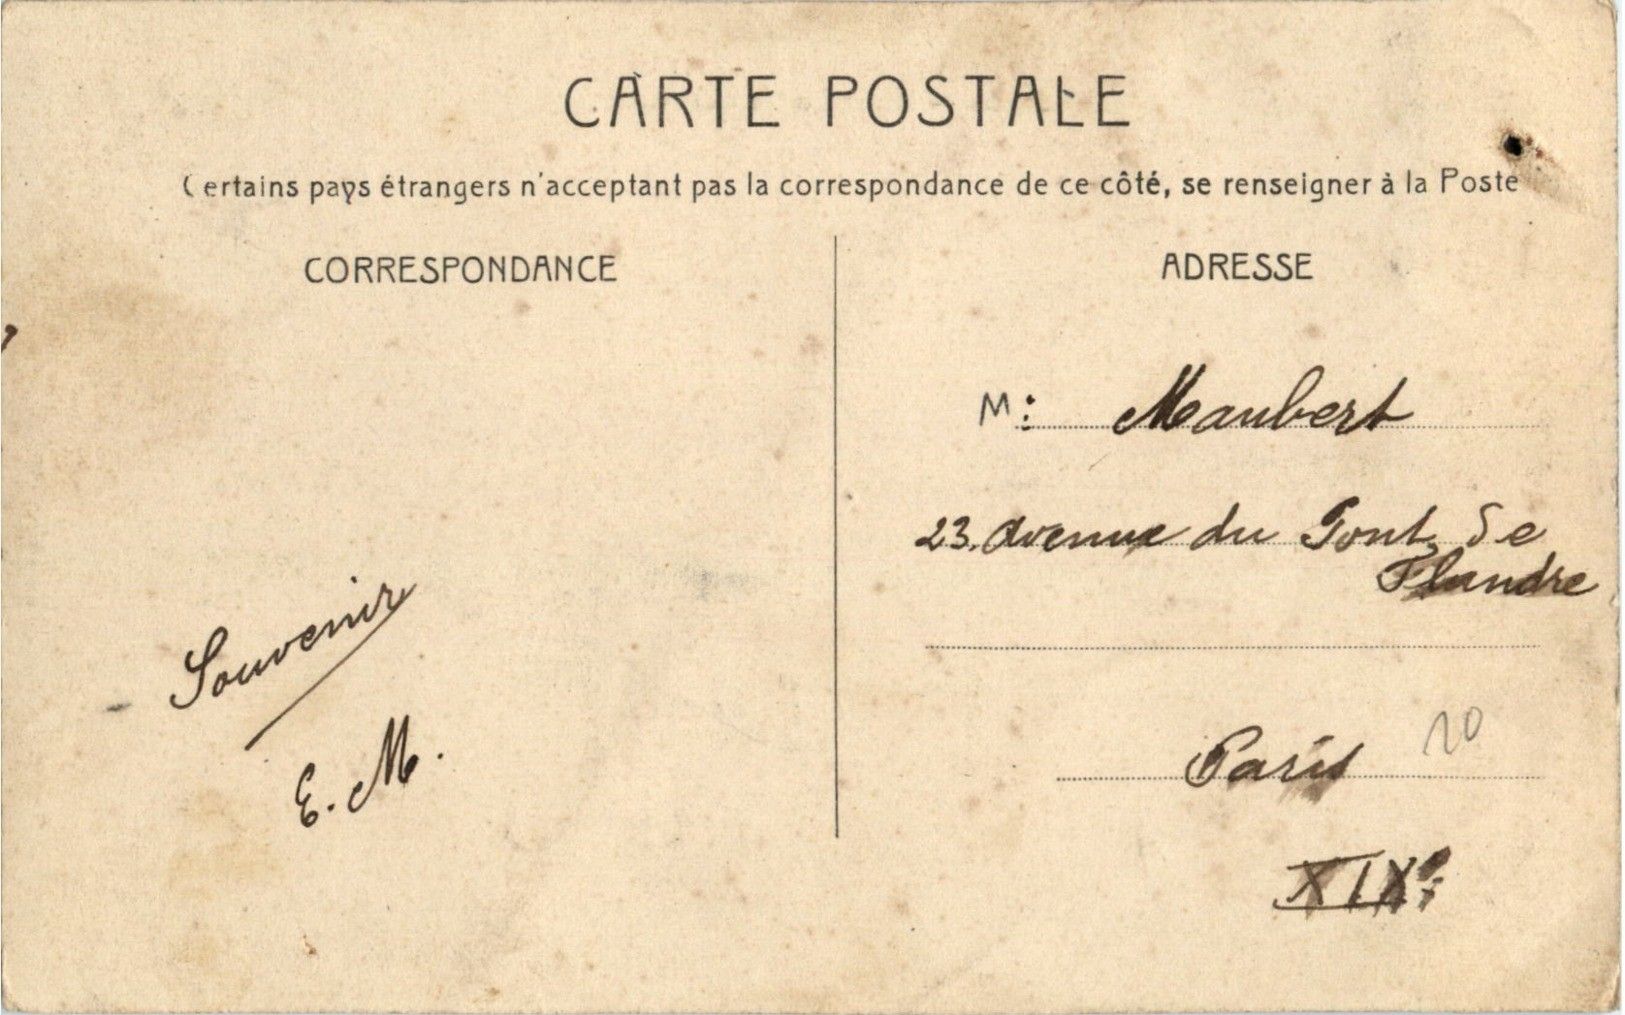 CARTE POSTALE
Certains pays étrangers n'acceptant pas la correspondance de ce côté, se renseigner à la Poste
CORRESPONDANCE
ADRESSE
M: Maubert
23. Avenue du Pont de
Flandre
Souvenir
E. M.
Paris
20
XIXe